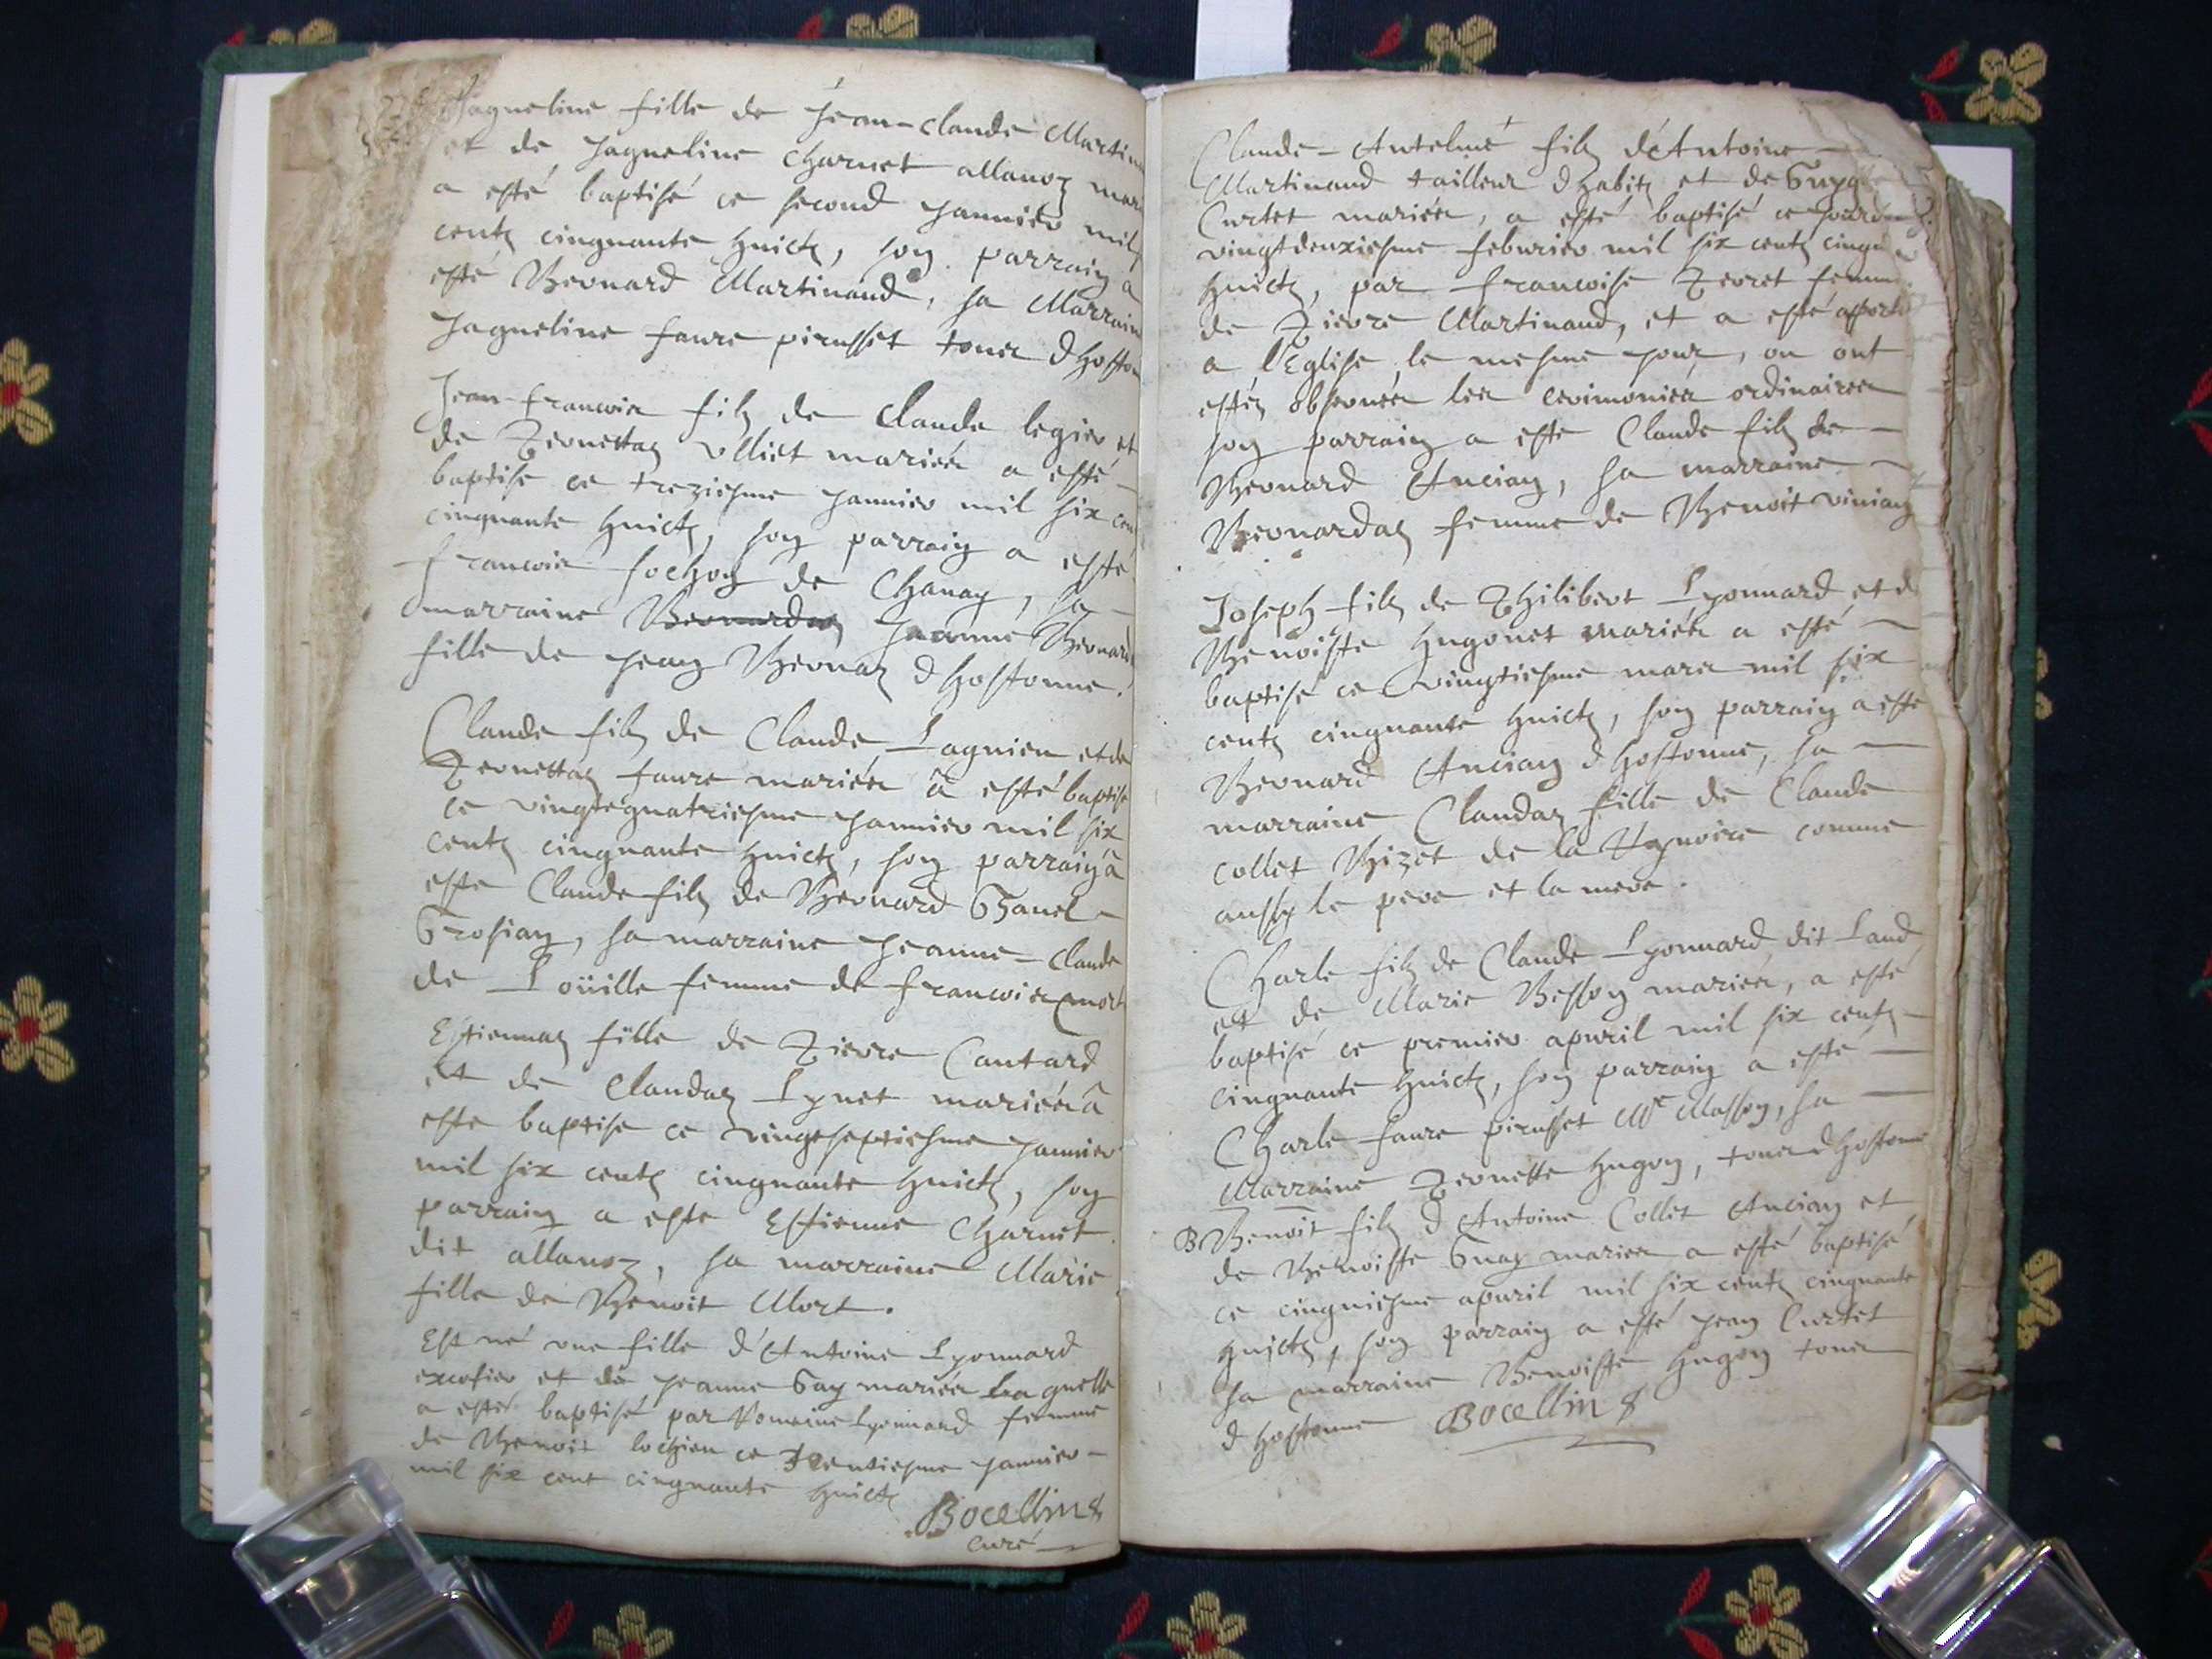 Jaqueline fille de Jean-Claude Martin
et de Jaqueline Charvet allanoz mar
a esté baptisé ce second Janvier mil
centz cinquante huictz, son parrain a
esté Bernard Martinand, sa Marraine
Jaqueline faure pirasset tous d'hosto
Jean-francois filz de Claude legier et
de Pernettaz Ulliet mariés a esté
baptise ce treziesme Janvier mil six cen
cinquante huictz, son parrain a esté
francois sochon de Chanay, sa
marraine Jeanne Bernard
fille de Jean Bernaz d'hostonne.
Claude filz de Claude Lagnieu et de
Pernettaz faure mariés a esté baptisé
ce vingtequatriesme Janvier mil six
centz cinquante huictz, son parrain a
esté Claude filz de Bernard
Grosian, sa marraine Jeanne-Claude
de Loüille femme de francois mort
Estiennaz fille de Pierre Cantard
et de Claudaz Lynet mariés a
esté baptise ce vingtseptiesme Janvier
mil six centz cinquante huictz, son
parrain a esté Estienne Charvet
dit allanoz, sa marraine Marie
fille de Benoit Mort.
Est né une fille d'Antoine Lyonnard
excofier et de Jeanne Gay mariés laquelle
a esté baptisé par Romaine Lyonnard femme
de Benoit lochieu ce Trentiesme Janvier
mil six cent cinquante huictz
Bocellin
curé
Claude-Antelme filz d'Antoine
Martinand tailleur d'habitz et de
Curtet mariés, a esté baptisé ce
vingtdeuxiesme feburier mil six centz cinqu
huictz, par francoise Perret femme
de Pierre Martinand, et a esté aporté
a l'Eglise le mesme jour, ou ont
estéz observées les cerimonies ordinaires
son parrain a esté Claude filz de
Bernard Ancian, sa marraine
Bernardaz femme de Benoit vinian
Joseph filz de Philibert Lyonnard et d
Benoiste hugonet mariés a esté
baptisé ce vingtiesme mars mil six
centz cinquante huictz, son parrain a esté
Bernard Ancian d'hostonne, sa
marraine Claudaz fille de Claude
collet Bizet de la comme
aussy le pere et la mere.
Charle filz de Claude Lyonnard dit Land
et de Marie Besson mariés, a esté
baptisé ce premier apuril mil six centz
cinquante huictz, son parrain a esté
Charle faure pirasset Me Masson, sa
Marraine Pernette hugon, tous d'hostonne
B Benoit filz d'Antoine Collet Ancian et
de Benoiste Guay mariés a esté baptisé
ce cinquiesme apuril mil six centz cinquante
huictz, son parrain a esté Jean Curtet
sa marraine Benoiste hugon tous
d'hostonne Bocellin